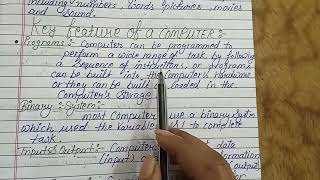 including numbers, words, pictures, movies
and sound.
Key feature of a Computer:-
Programs:- Computer can be programmed to
perform a wide range of task by following
a sequence of instructions or programs
can be built into the Computer's Hardware
or they can be loaded in the
Computer's Storage
Binary:- System:-
most Computer use a binary system
which used the variable to complete
task.
Input & Output:- Computer data
(input)